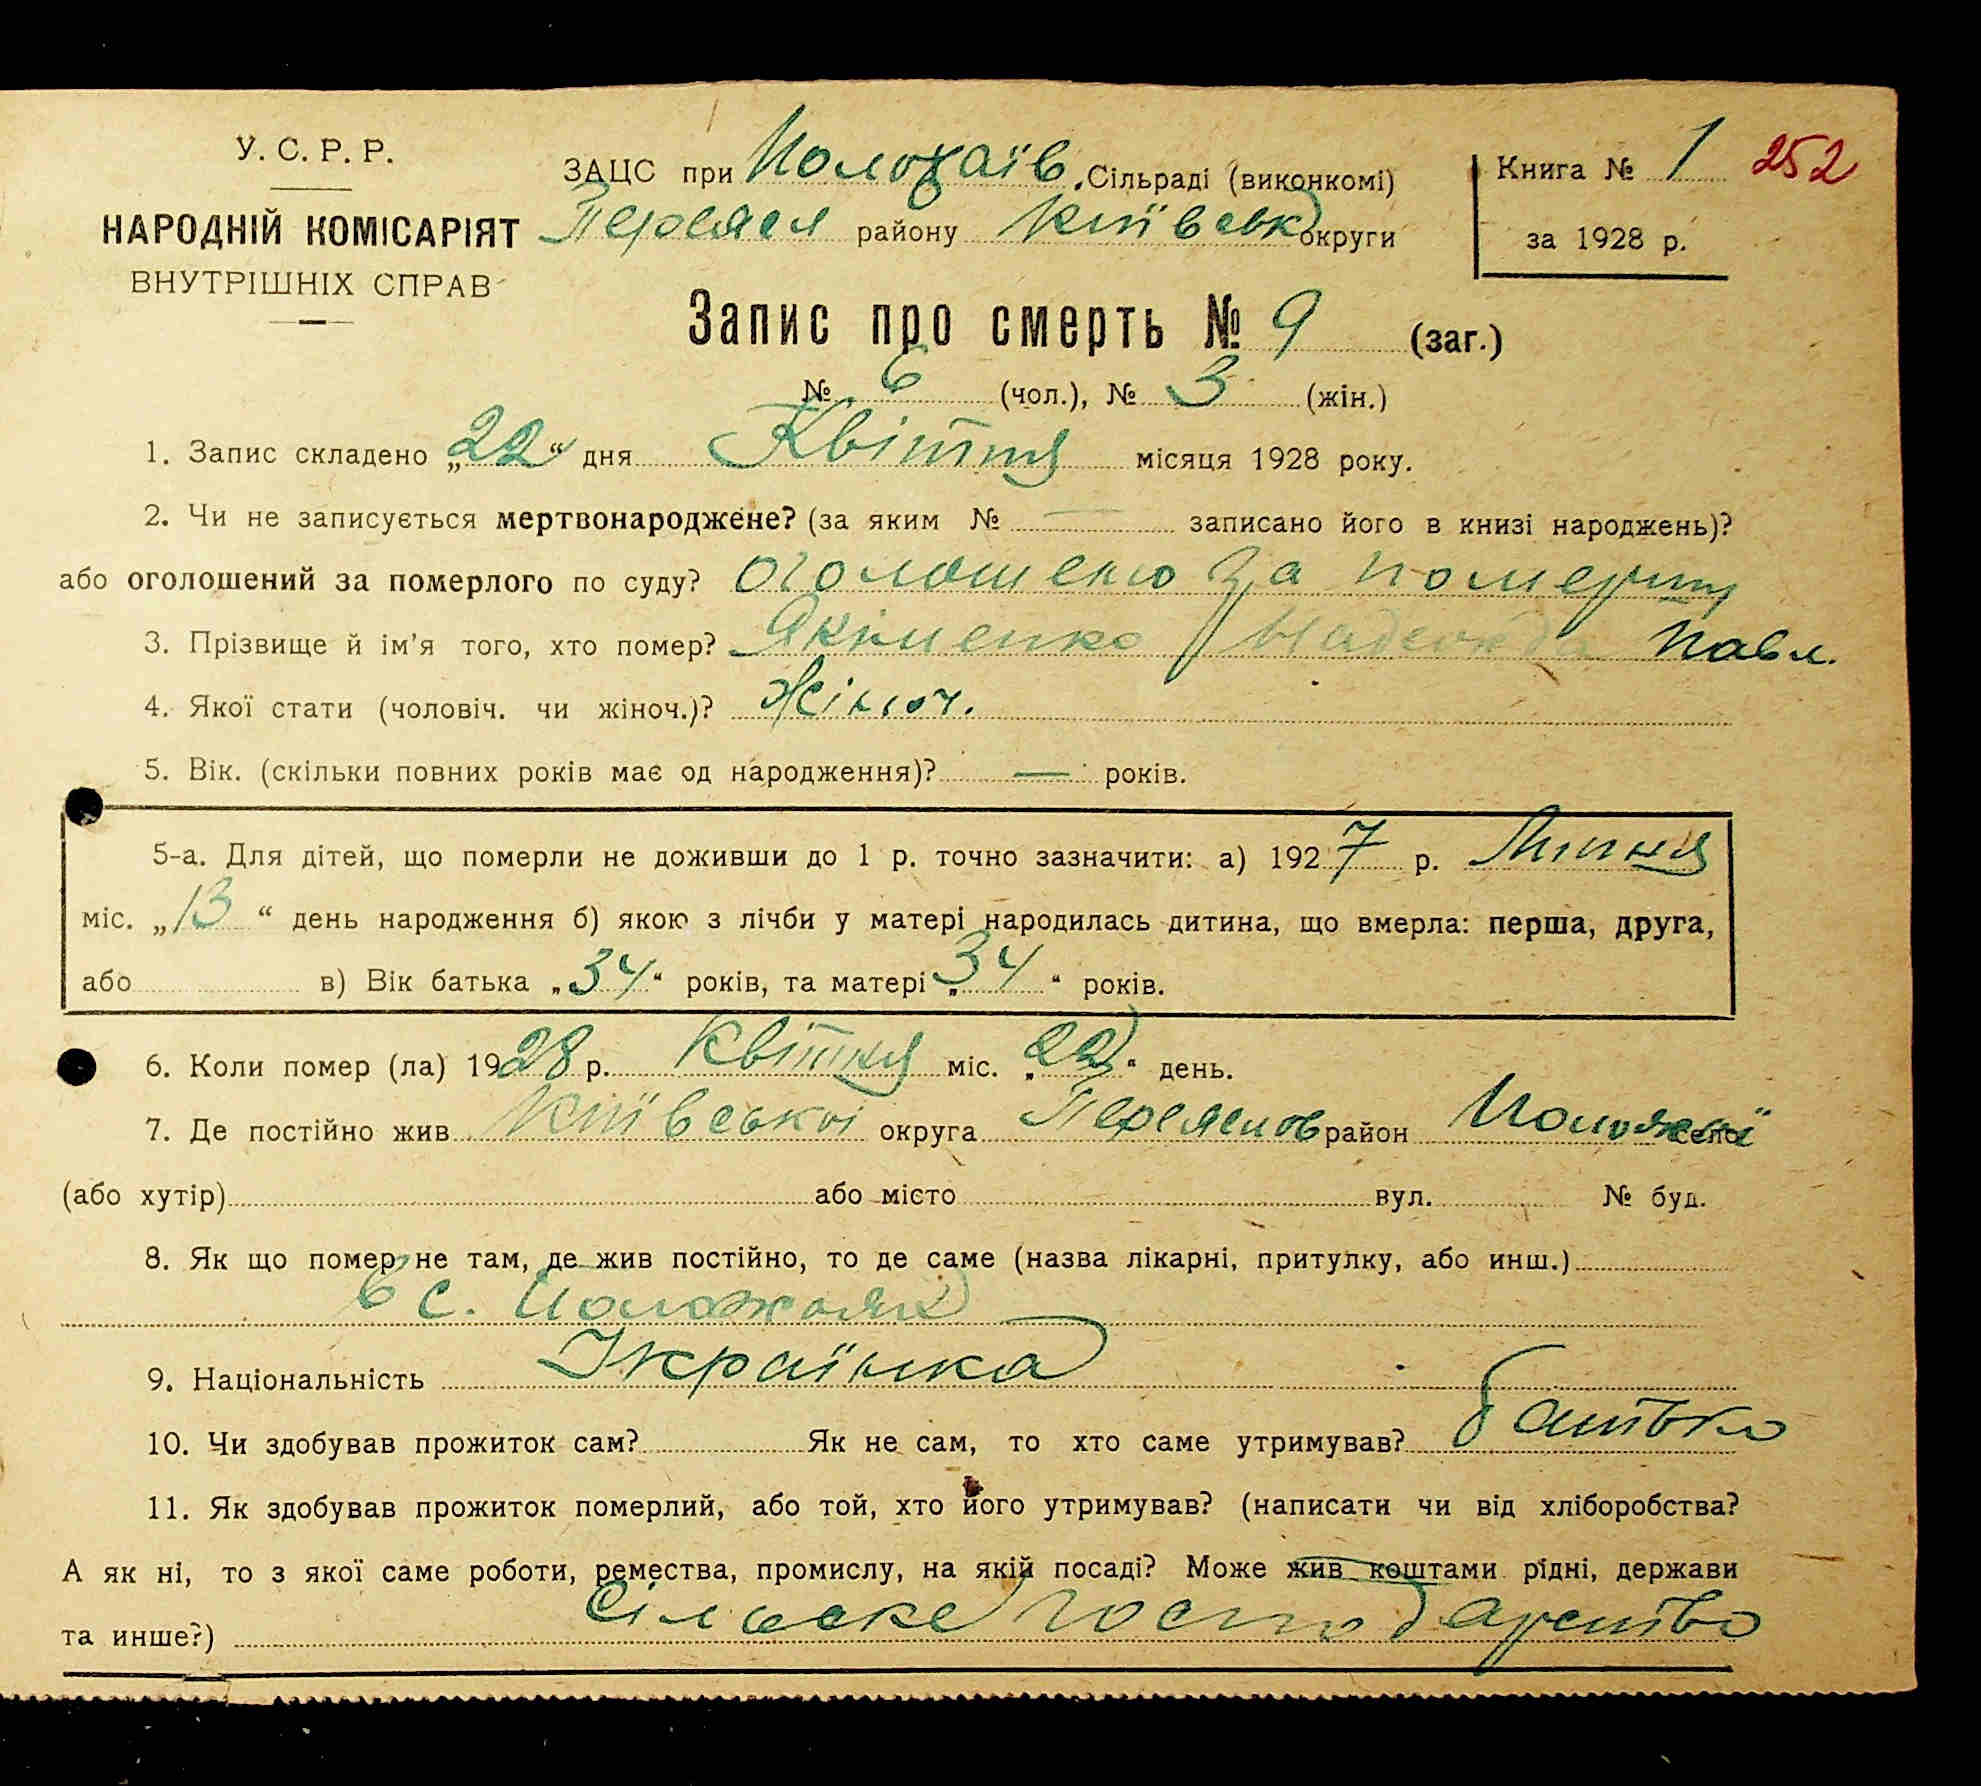 У. С. Р. Р.
НАРОДНІЙ КОМІСАРІЯТ
ВНУТРІШНІХ СПРАВ
ЗАЦС при Положаїв. Сільраді (виконкомі)
Переясл району Київськ округи
Книга № 1 252
за 1928 р.
Запис про смерть № 9 (заг.)
№ 6 (чол.), № 3 (жін.)
1. Запис складено „22“ дня Квітня місяця 1928 року.
2. Чи не записується мертвонароджене? (за яким № — записано його в книзі народжень)?
або оголошений за померлого по суду? оголошено за
3. Прізвище й ім'я того, хто помер? Якименко Надежда Павл.
4. Якої стати (чоловіч. чи жіноч.)? Жіноч.
5. Вік. (скільки повних років має од народження)? — років.
5-а. Для дітей, що померли не доживши до 1 р. точно зазначити: а) 1927 р. Липня
міс. „13“ день народження б) якою з лічби у матері народилась дитина, що вмерла: перша, друга,
або в) Вік батька „34“ років, та матері „34“ років.
6. Коли помер (ла) 1928 р. Квітня міс. „22“ день.
7. Де постійно жив Київської округа Переяслов район село
(або хутір) або місто вул. № буд.
8. Як що помер не там, де жив постійно, то де саме (назва лікарні, притулку, або инш.)
в с. Положаях
9. Національність Українка
10. Чи здобував прожиток сам? Як не сам, то хто саме утримував? батько
11. Як здобував прожиток померлий, або той, хто його утримував? (написати чи від хліборобства?
А як ні, то з якої саме роботи, ремества, промислу, на якій посаді? Може жив коштами рідні, держави
та инше?) сільське господарство